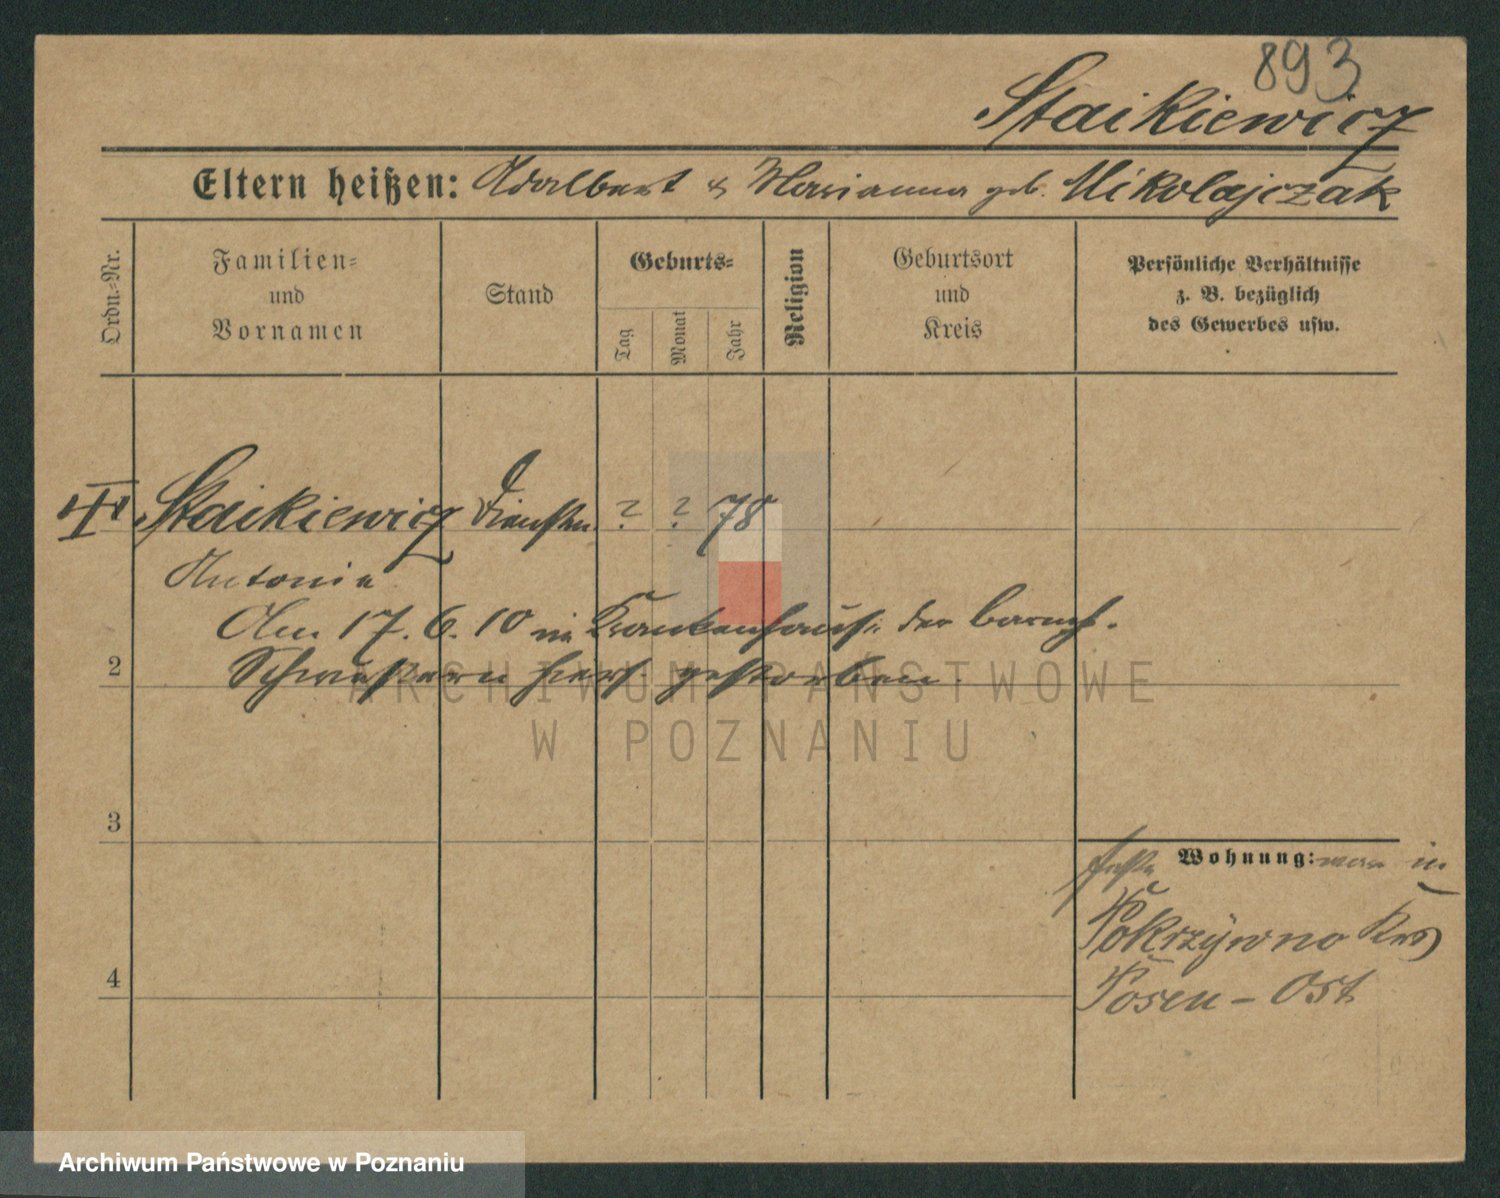 893
Staikiewicz
Eltern heißen: Adalbert & Marianna geb. Mikolajczak
Ordn.-Nr.
Familien-
und
Vornamen
Stand
Geburts-
Tag
Monat
Jahr
Religion
Geburtsort
und
Kreis
Persönliche Verhältnisse
z. B. bezüglich
des Gewerbes usw.
Staikiewicz ? ? 78
Antonie
Am 17. 6. 10 im Krankenhaus der barmh.
2 Schwestern hiers. gestorben.
3
Wohnung: war in
Pokrzywno Krs
4 Posen - Ost
ARCHIWUM PAŃSTWOWE
W POZNANIU
Archiwum Państwowe w Poznaniu